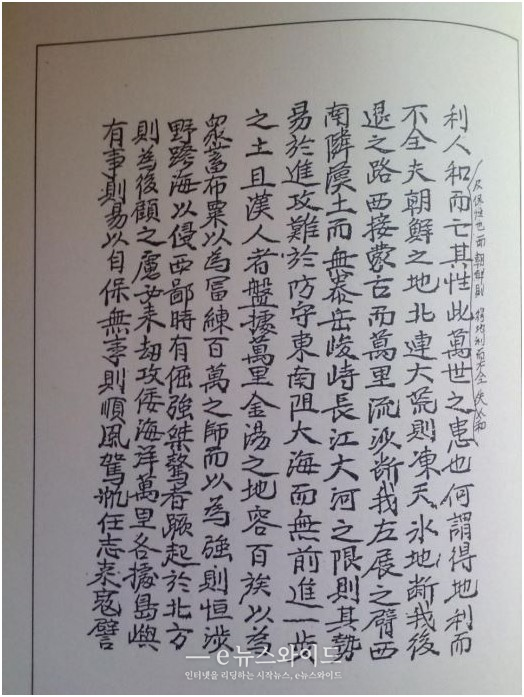 利人和而亡其性此萬世之患也何謂得地利而
反保性也而朝鮮則 得地利而不全失人和
不全夫朝鮮之地北連大荒則凍天氷地斷我後
退之路西接蒙古而萬里流沙斷我左展之臂西
南隣漢土而無泰岳峻峙長江大河之限則其勢
易於進攻難於防守東南阻大海而無前進一步
之土且漢人者盤據萬里金湯之地容百族以為
衆蓄布粟以為冨練百萬之師而以為強則恒涉
野跨海以侵西鄙時有倔強桀驁者蹶起於北方
則為後顧之慮必来劫攻倭海洋萬里各據島嶼
有事則易以自保無事則順風駕帆任志来寇譬
e뉴스와이드
인터넷을 리딩하는 시작뉴스, e뉴스와이드